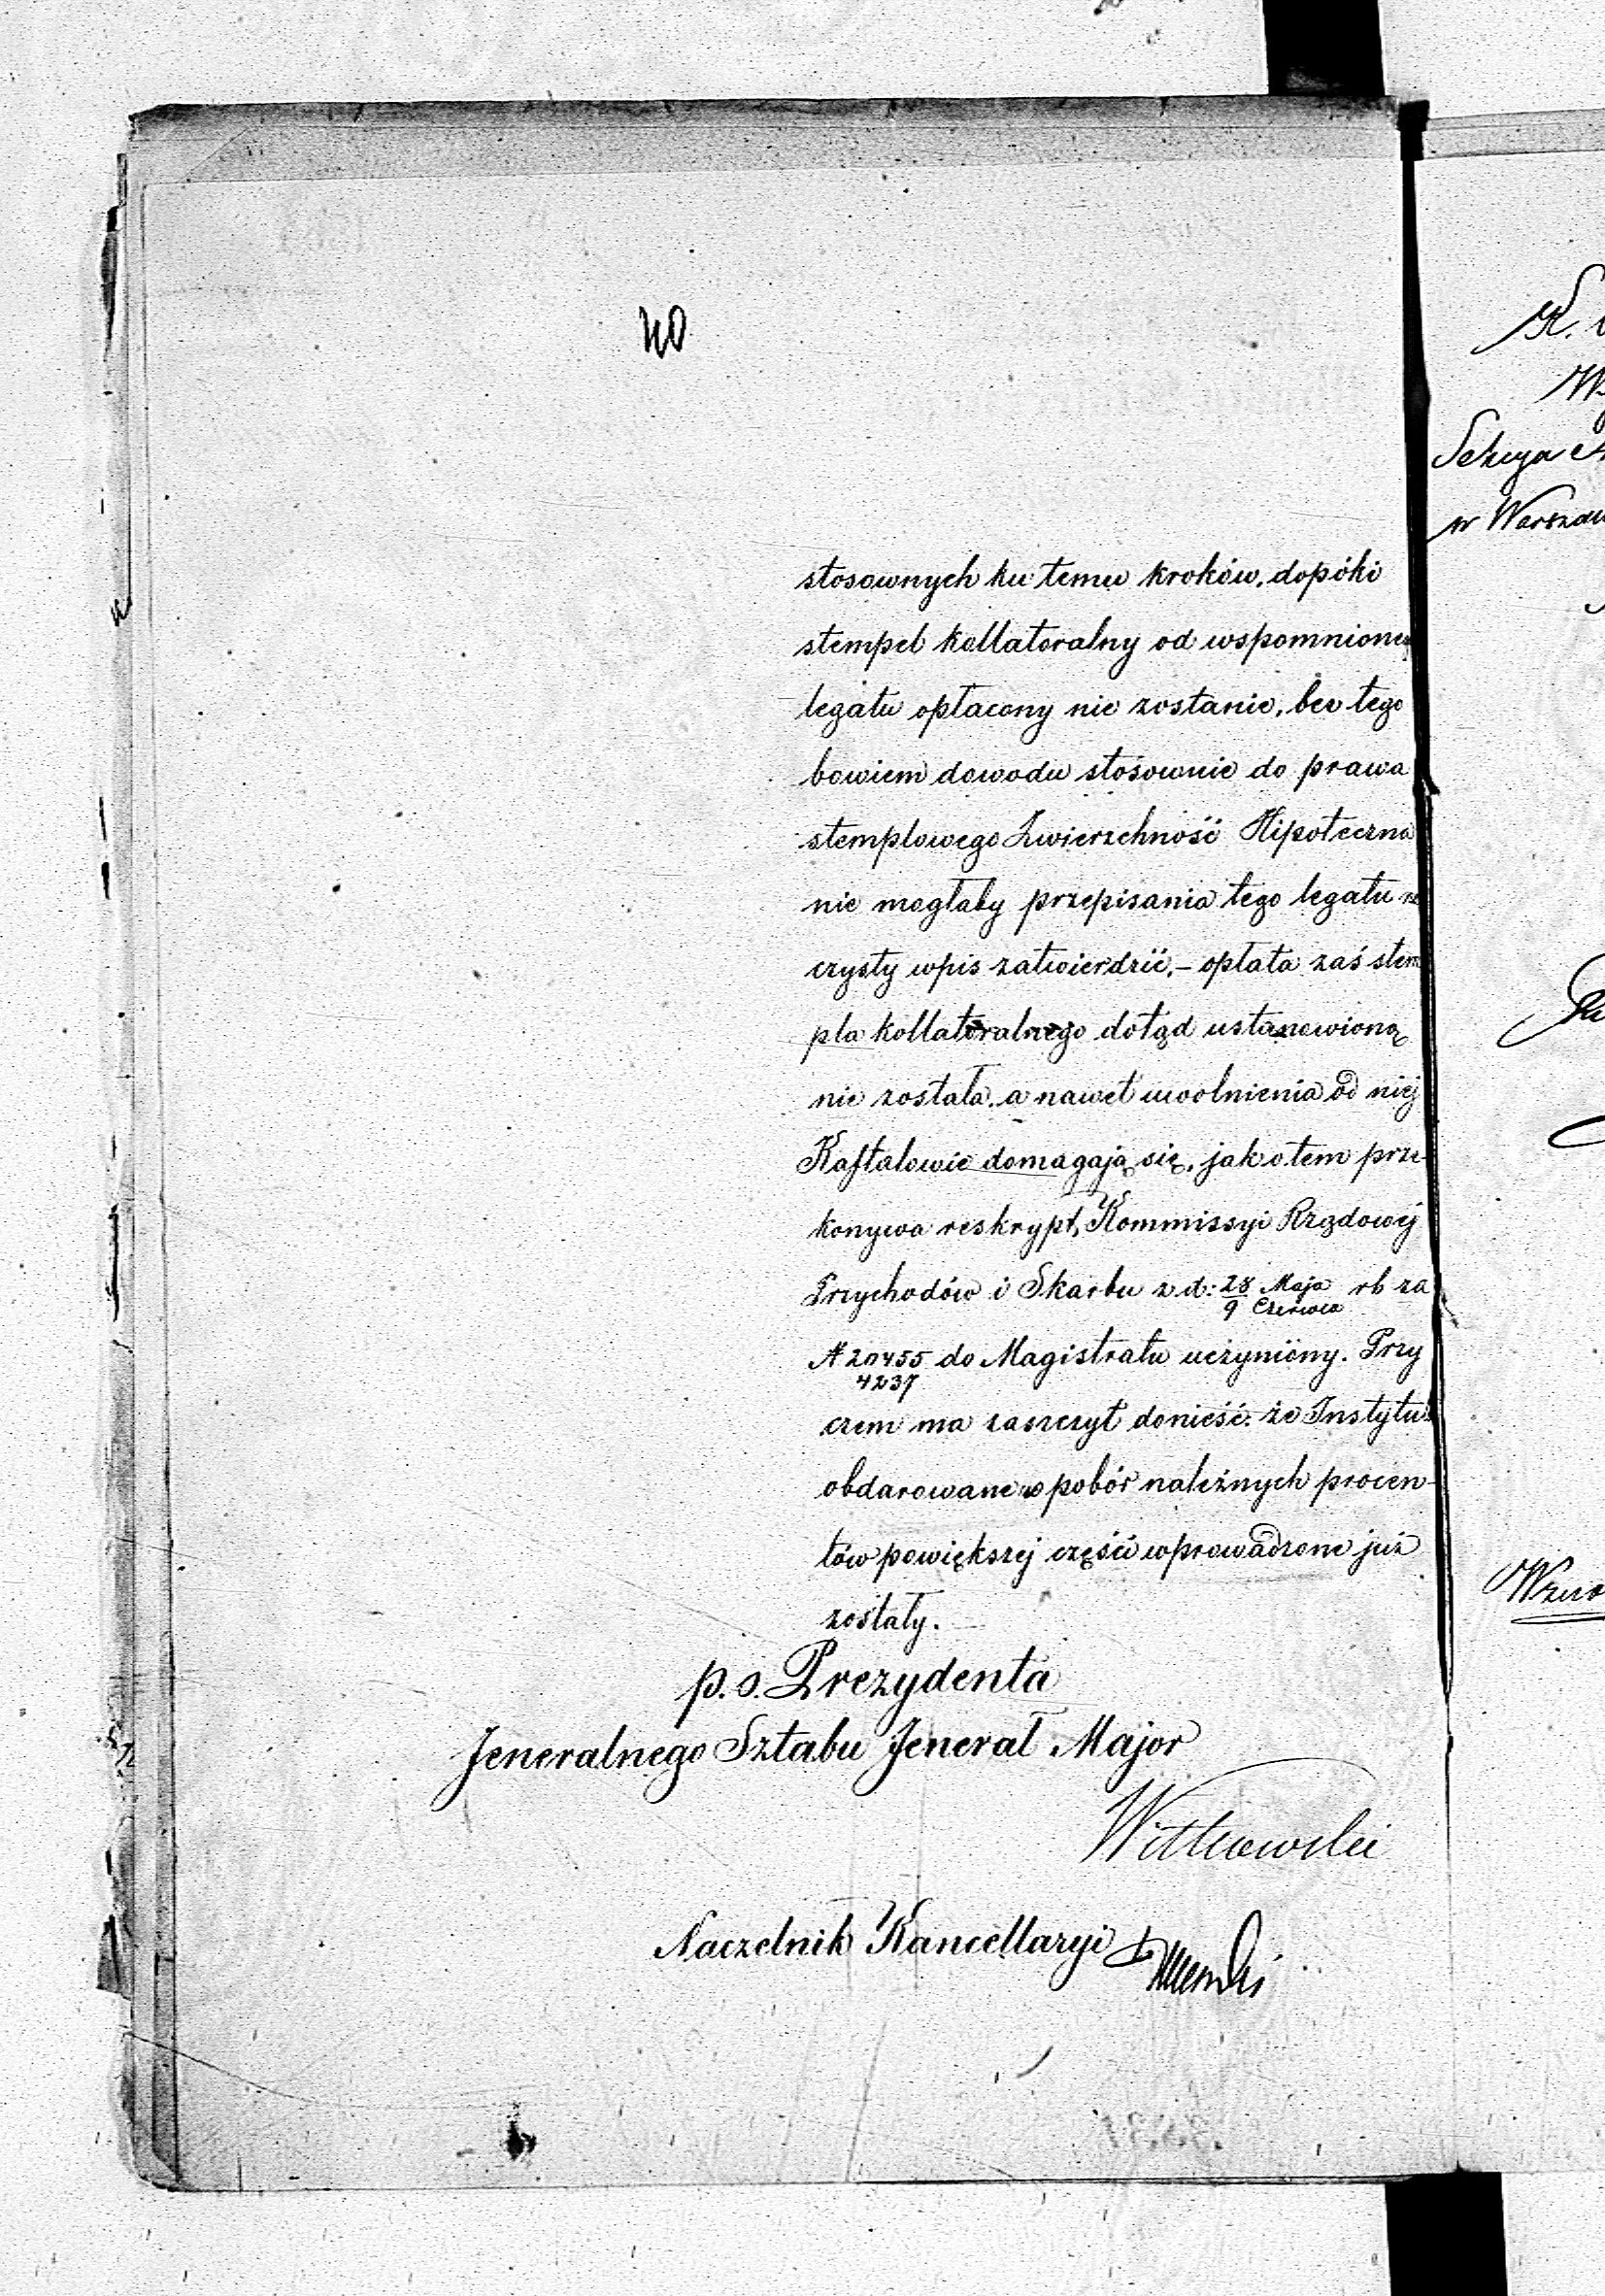 40
stosownych ku temu kroków, dopóki
stempel kollateralny od wspomnione
legatu opłacony nie zostanie, bez tego
bowiem dowodu stosownie do prawa
stemplowego Zwierzchność Hipoteczna
nie mogłaby przepisania tego legatu n
czysty wpis zatwierdzić, – opłata zaś stem
pla kollateralnego dotąd ustanowioną
nie została, a nawet uwolnienia od niej
Kaftalowie domagają się, jak o tem prze-
konywa reskrypt, Kommissyi Rządowej
Przychodów i Skarbu z d: 28 Maja / 9 Czerwca rb za
N 20455 / 4237 do Magistratu uczyniony. Przy
czem ma zaszczyt donieść, że Instytu
obdarowane w pobór należnych procen-
tów powiększej części wprowadzone już
zostały.
p. o. Prezydenta
Jeneralnego Sztabu Jenerał Major
Witkowski
Naczelnik Kancellaryi
K.
Sekcya
w Warszaw